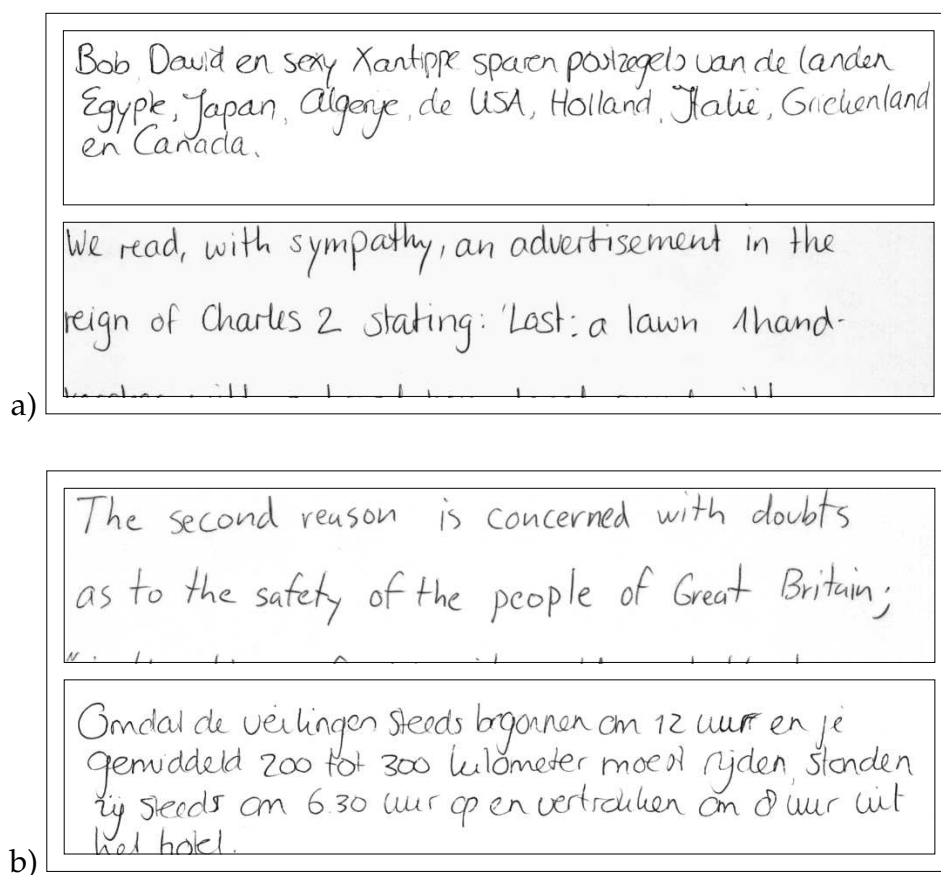 Bob, David en sexy Xantippe sparen postzegels van de landen
Egypte, Japan, Algerije, de USA, Holland, Italië, Griekenland
en Canada.
We read, with sympathy, an advertisement in the
reign of Charles 2 stating: 'Lost: a lawn 1hand-
a)
The second reason is concerned with doubts
as to the safety of the people of Great Britain;
Omdat de veilingen steeds begonnen om 12 uur en je
gemiddeld 200 tot 300 kilometer moest rijden, stonden
zij steeds om 6.30 uur op en vertrokken om 8 uur uit
het hotel.
b)